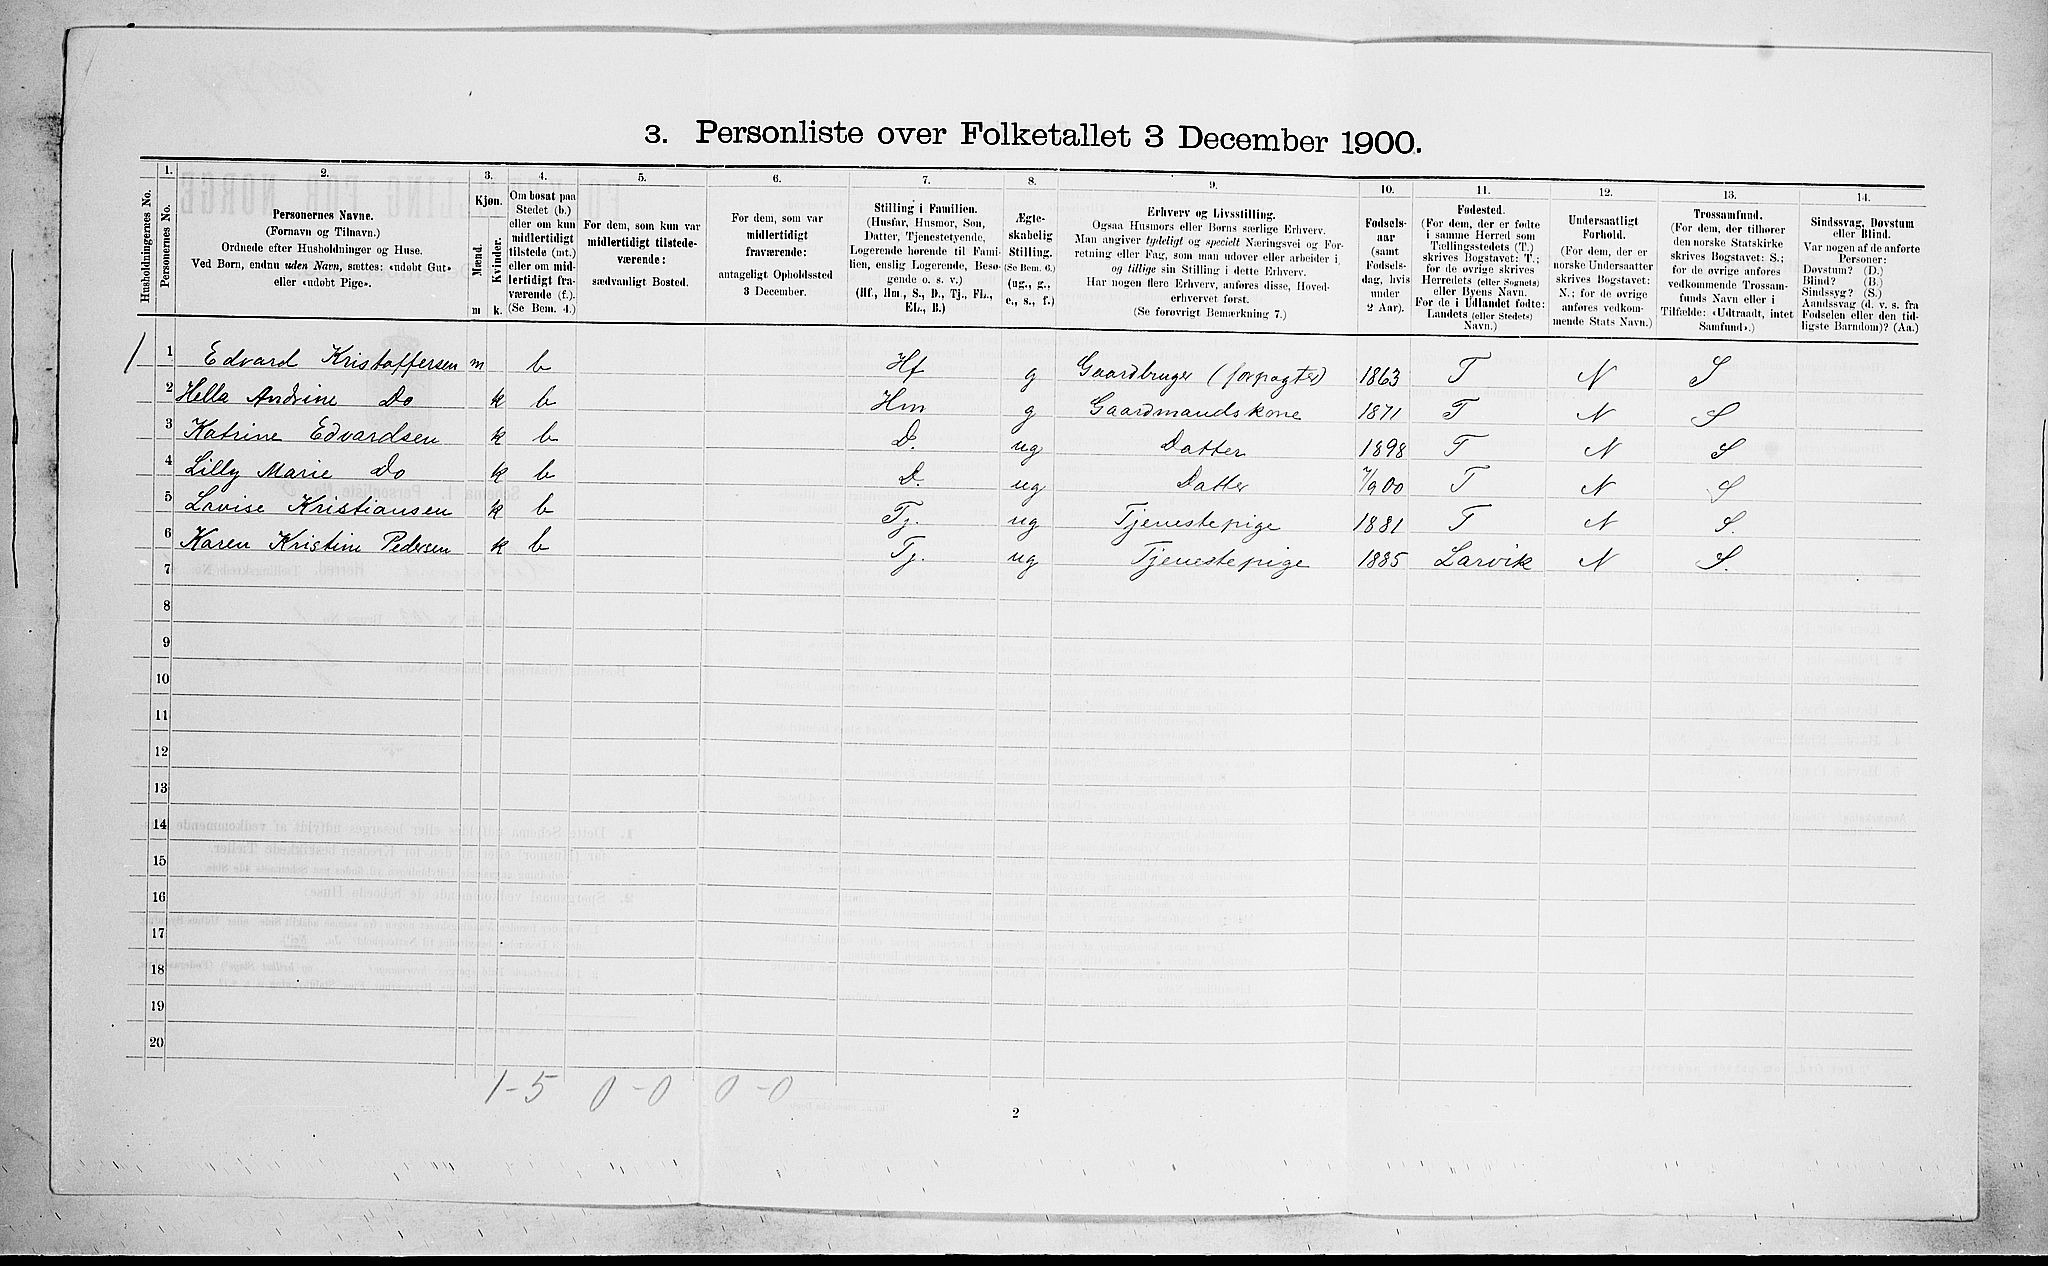 3. Personliste over Folketallet 3 December 1900.
Husholdningernes No.
1. Personernes No.
2. Personernes Navne. (Fornavn og Tilnavn.) Ordnede efter Husholdninger og Huse. Ved Børn, endnu uden Navn, sættes: «udøbt Gut» eller «udøbt Pige».
3. Kjøn. Mænd. m Kvinder. k.
4. Om bosat paa Stedet (b.) eller om kun midlertidigt tilstede (mt.) eller om midlertidigt fraværende (f.). (Se Bem. 4.)
5. For dem, som kun var midlertidigt tilstedeværende: sædvanligt Bosted.
6. For dem, som var midlertidigt fraværende: antageligt Opholdssted 3 December.
7. Stilling i Familien. (Husfar, Husmor, Søn, Datter, Tjenestetyende, Logerende hørende til Familien, enslig Logerende, Besøgende o. s. v.) (Hf., Hm., S., D., Tj., FL., EL., B.)
8. Ægteskabelig Stilling. (Se Bem. 6.) (ug., g., e., s., f.)
9. Erhverv og Livsstilling. Ogsaa Husmors eller Børns særlige Erhverv. Man angiver tydeligt og specielt Næringsvei og Forretning eller Fag, som man udøver eller arbeider i, og tillige sin Stilling i dette Erhverv. Har nogen flere Erhverv, anføres disse, Hovederhvervet først. (Se forøvrigt Bemærkning 7.)
10. Fødselsaar (samt Fødselsdag, hvis under 2 Aar).
11. Fødested. (For dem, der er fødte i samme Herred som Tællingsstedets (T.) skrives Bogstavet: T.; for de øvrige skrives Herredets (eller Sognets) eller Byens Navn. For de i Udlandet fødte: Landets (eller Stedets) Navn.)
12. Undersaatligt Forhold. (For dem, der er norske Undersaatter skrives Bogstavet: N.; for de øvrige anføres vedkommende Stats Navn.)
13. Trossamfund. (For dem, der tilhører den norske Statskirke skrives Bogstavet: S.; for de øvrige anføres vedkommende Trossamfunds Navn eller i Tilfælde: «Udtraadt, intet Samfund».)
14. Sindssvag, Døvstum eller Blind. Var nogen af de anførte Personer: Døvstum? (D.) Blind? (B.) Sindssyg? (S.) Aandssvag (d. v. s. fra Fødselen eller den tidligste Barndom)? (Aa.)
1 1 Edvard Kristoffersen m b Hf g Gaardbruger (forpagter) 1863 T N S
2 Hella Andrine Do k b Hm g Gaardmandskone 1871 T N S
3 Katrine Edvardsen k b D. ug Datter 1898 T N S
4 Lilly Marie Do k b D. ug Datter 7/9 00 T N S
5 Lovise Kristiansen k b Tj. ug Tjenestepige 1881 T N S.
6 Karen Kristine Pedersen k b Tj. ug Tjenestepige 1885 Larvik N S.
7
8
9
10
11
12
13
14
15
16
17
18
19
20
1-5 0-0 0-0
2